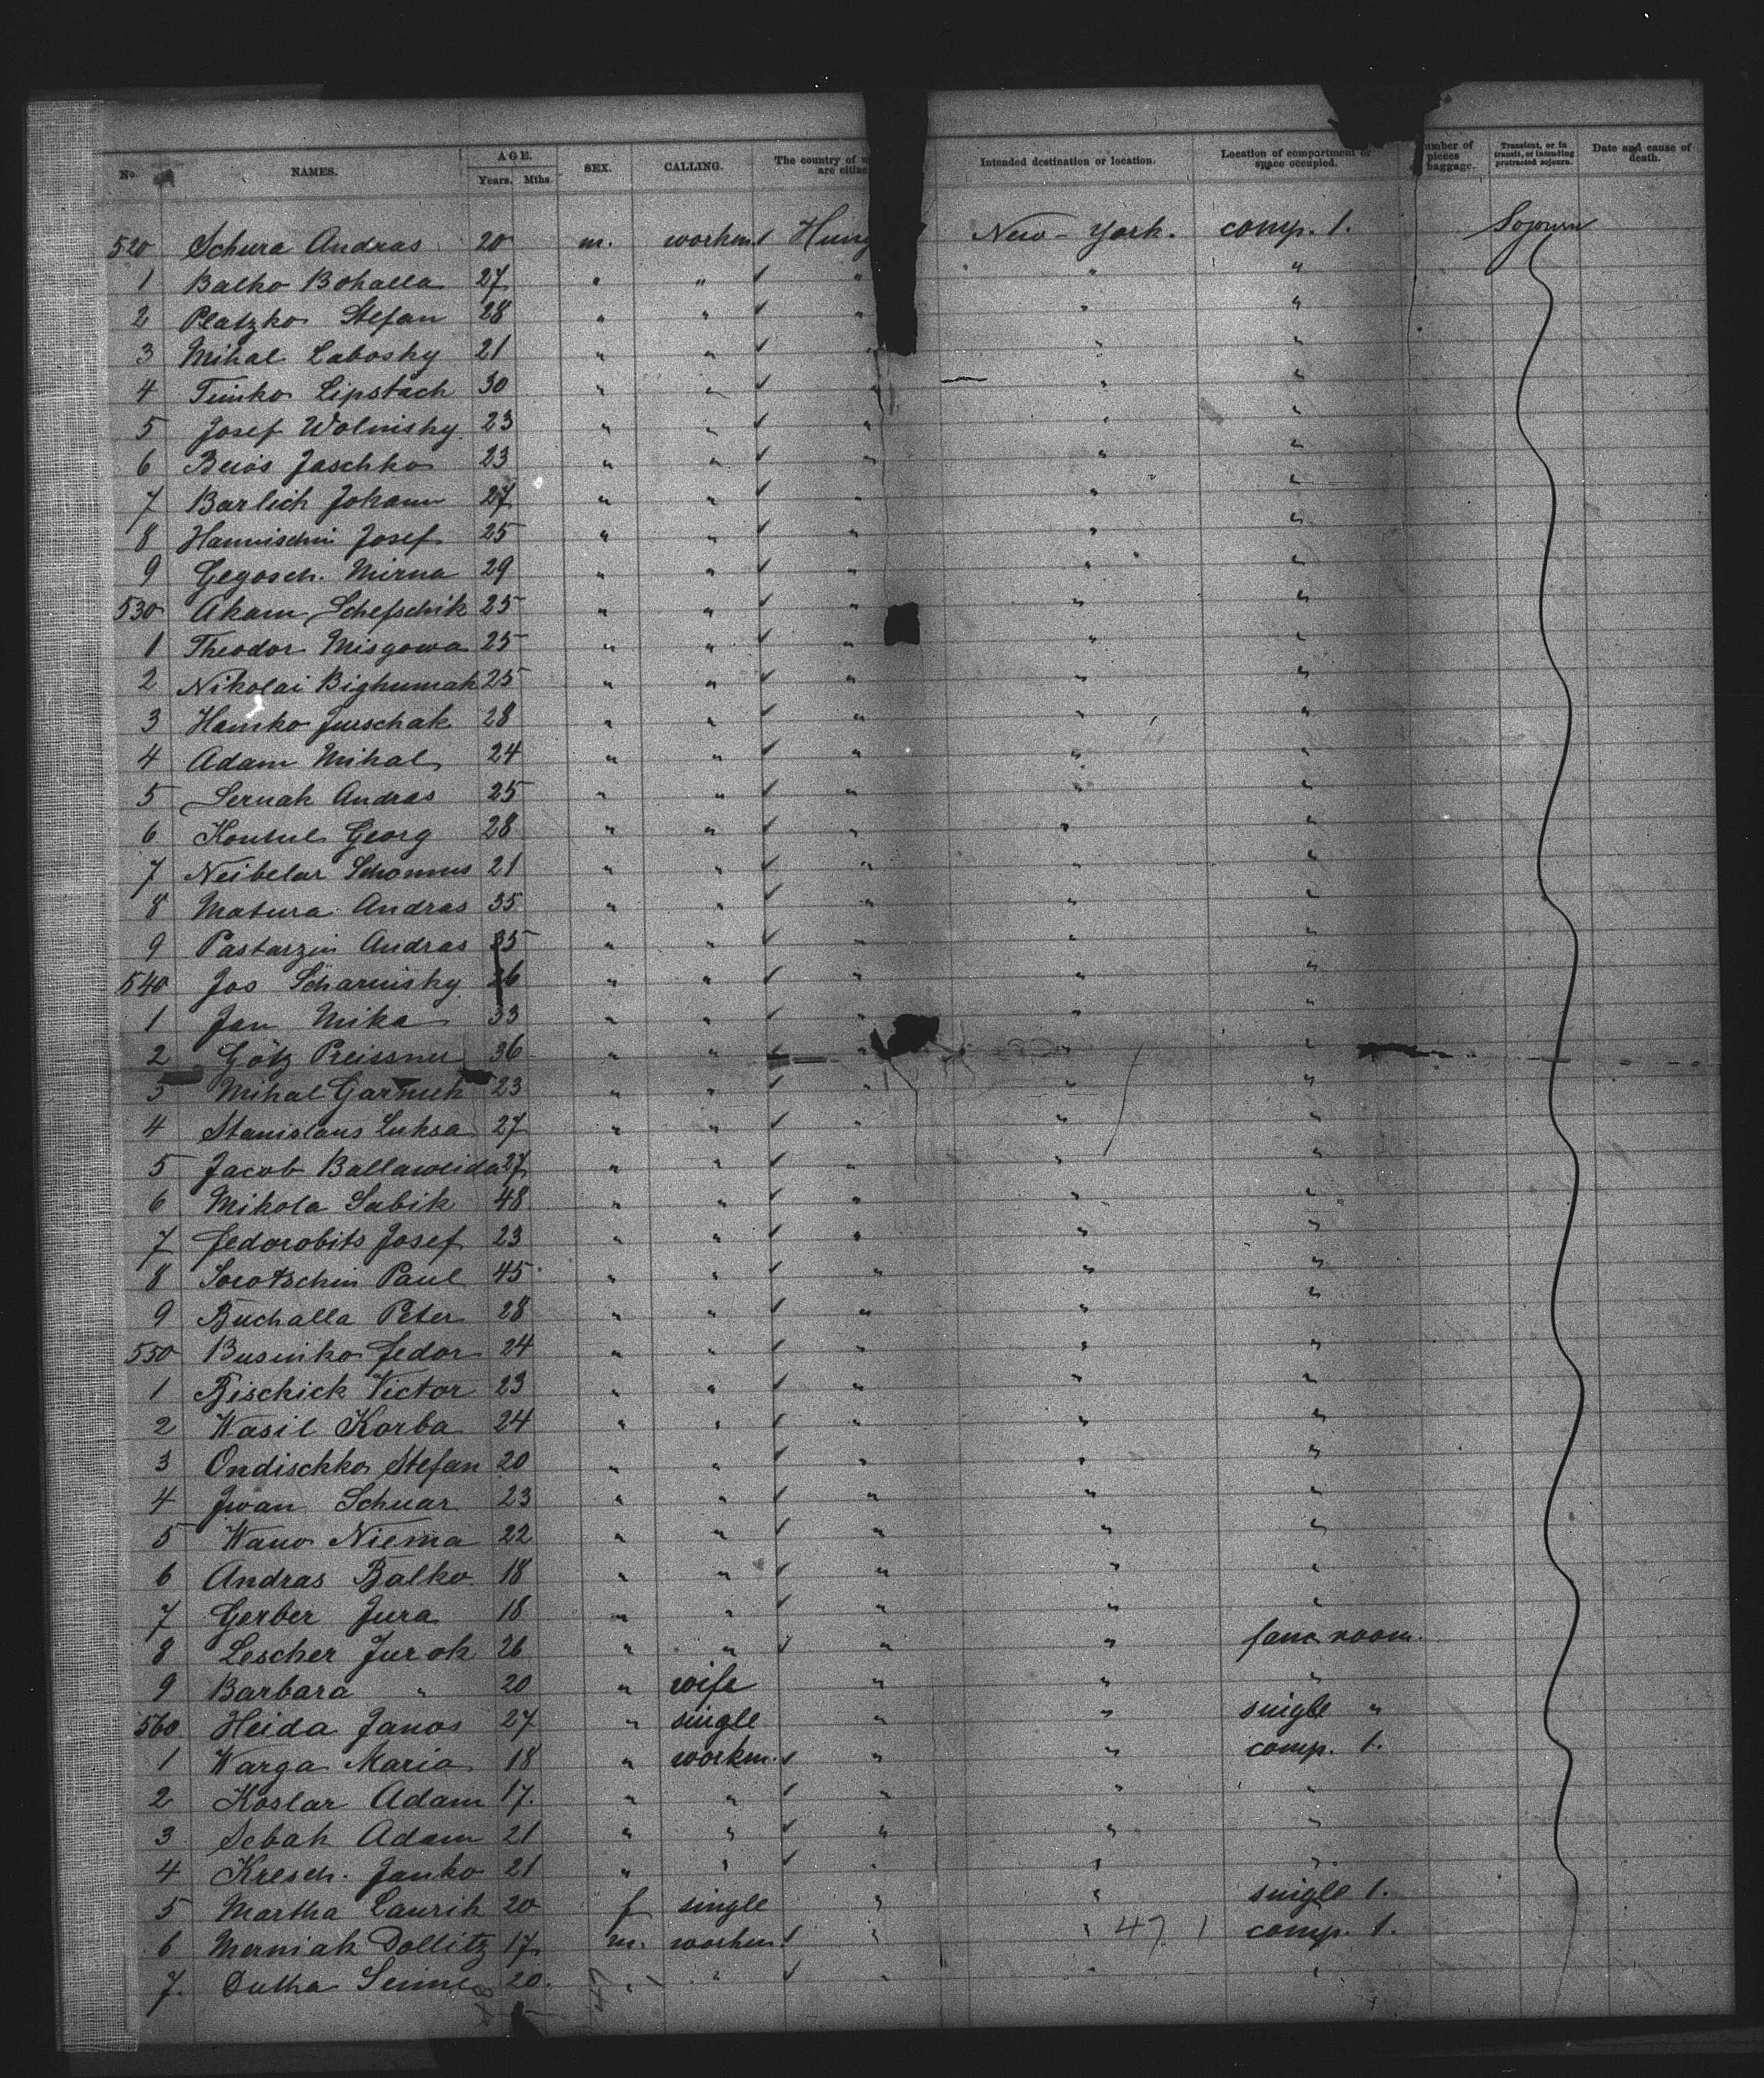 No. NAMES. AGE. Years. Mths. SEX. CALLING. The country of w are citize Intended destination or location. Location of compartment or space occupied. umber of pieces baggage. Transient, or in transit, or intending protracted sojourn. Date and cause of death.
520 Schura Andras 20 m. workm. Hung New-York. comp. 1. Sojourn
1 Balko Bohalla 27 " " " " "
2 Platzko Stefan 28 " " " " "
3 Mihal Labosky 21 " " " " "
4 Timko Lipstach 30 " " " " "
5 Josef Wolinsky 23 " " " " "
6 Jaschko 23 " " " " "
7 Barlich Johann 27 " " " " "
8 Josef 25 " " " " "
9 Gegosch. Mirna 29 " " " " "
530 Akam Schefschik 25 " " " " "
1 Theodor Misgowa 25 " " " " "
2 Nikolai Bighumak 25 " " " " "
3 Hamko Jurschak 28 " " " " "
4 Adam Mihal 24 " " " " "
5 Sernak Andras 25 " " " " "
6 Georg 28 " " " " "
7 Neibelar 21 " " " " "
8 Matura Andras 35 " " " " "
9 Pastarzin Andras 35 " " " " "
540 Jos Scharinsky 26 " " " " "
1 Jan Mika 33 " " " " "
2 Götz Preissner 36 " " " " "
3 Mihal 23 " " " " "
4 Stanislaus Luksa 27 " " " " "
5 Jacob Ballaweida 27 " " " " "
6 Mikola Sabik 48 " " " " "
7 Fedorobits Josef 23 " " " " "
8 Sorotschin Paul 45 " " " " "
9 Buchalla Peter 28 " " " " "
550 Businko Fedor 24 " " " " "
1 Bischick Victor 23 " " " " "
2 Wasil Korba 24 " " " " "
3 Ondischko Stefan 20 " " " " "
4 Jwan Schuar 23 " " " " "
5 Wano Niema 22 " " " " "
6 Andras Balko 18 " " " " "
7 Gerber Jura 18 " " " " "
8 Lescher Jurok 26 " " " " fam room.
9 Barbara " 20 " wife " " "
560 Heida Janos 27 " single " " single "
1 Warga Maria 18 " workm. " " comp. 1.
2 Koslar Adam 17. " " " " "
3 Sebak Adam 21 " " " " "
4 Kresch. Janko 21 " " " " "
5 Martha Laurik 20 f single " " single 1.
6 Merniak Dollitz 17 m. workm. " " 47 1 comp. 1.
7. Dutka 20. " " " " "